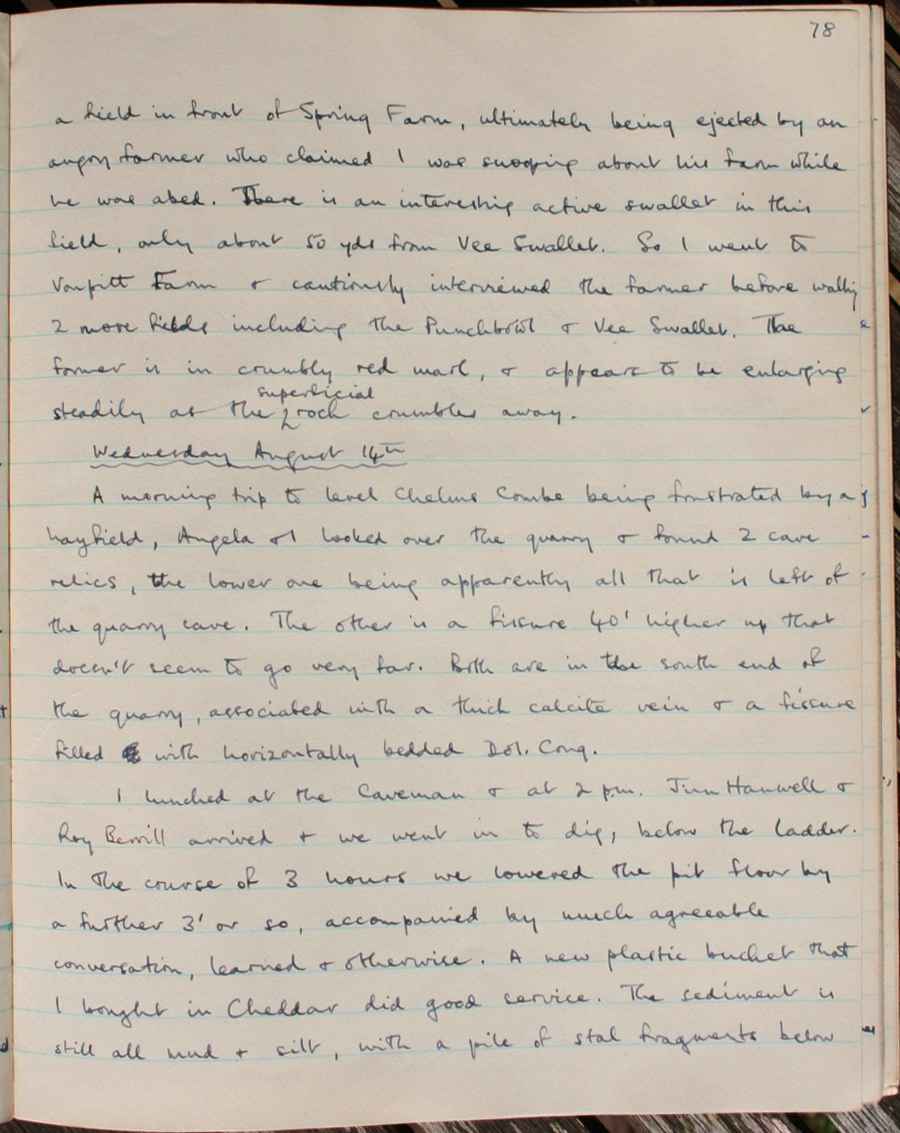 78
a field in front of Spring Farm, ultimately being ejected by an
angry farmer who claimed I was snooping about his farm while
he was abed. There is an interesting active swallet in this
field, only about 50 yds from Vee Swallet. So I went to
Vonpitt Farm & cautiously interviewed the farmer before walking
2 more fields including the Punchbowl & Vee Swallet. The
former is in crumbly red marl, & appears to be enlarging
superficial
steadily as the rock crumbles away.
Wednesday August 14th
A morning trip to level Chelms Combe being frustrated by a
hayfield, Angela & I looked over the quarry & found 2 cave
relics, the lower one being apparently all that is left of
the quarry cave. The other is a fissure 40' higher up that
doesn't seem to go very far. Both are in the south end of
the quarry, associated with a thick calcite vein & a fissure
filled with horizontally bedded Dol. Cong.
I lunched at the Caveman & at 2 pm. Jim Hanwell &
Roy Berrill arrived & we went in to dig, below the ladder.
In the course of 3 hours we lowered the pit floor by
a further 3' or so, accompanied by much agreeable
conversation, learned & otherwise. A new plastic bucket that
I bought in Cheddar did good service. The sediment is
still all mud & silt, with a pile of stal fragments below